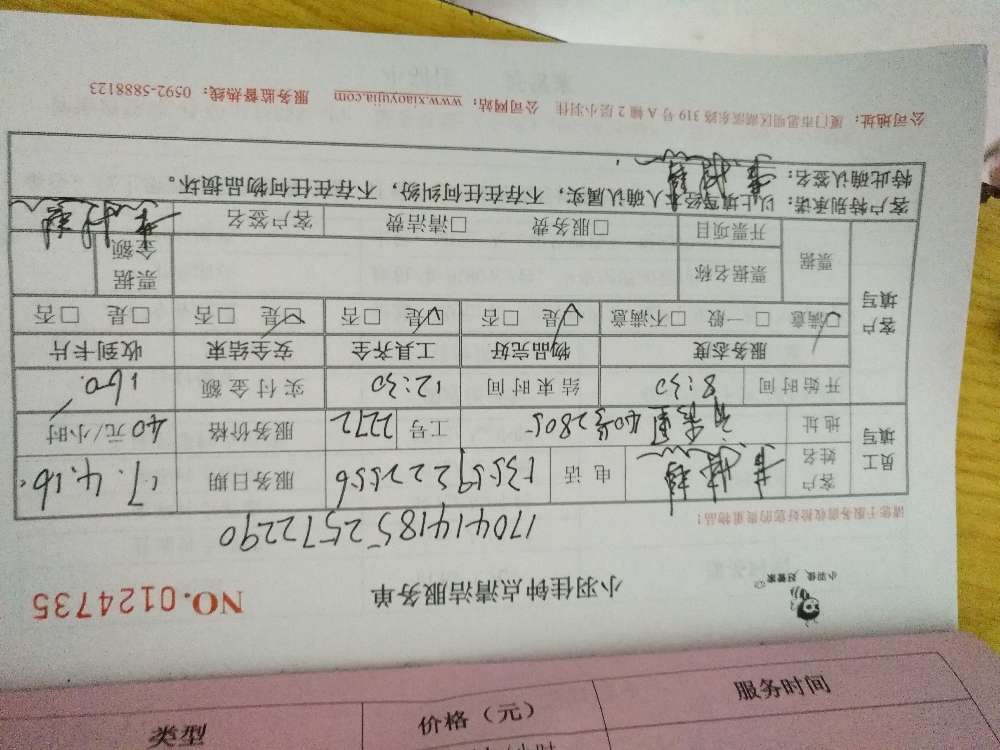 小羽佳 好管家
小羽佳钟点清洁服务单
NO.0124735
1704141852572290
请您于服务前收拾好您的贵重物品!
员工填写
客户姓名 电话 13559222556 服务日期 17.4.16.
地址 40号2805 工号 2272 服务价格 40元/小时
开始时间 8:30 结束时间 12:30 实付金额 160.
客户填写
服务态度 物品完好 工具齐全 安全结束 收到卡片
☑满意 □一般 □不满意 ☑是 □否 ☑是 □否 ☑是 □否 □是 □否
票据 票据名称 票据金额
开票项目 □服务费 □清洁费 客户签名
客户特别承诺:以上填写经本人确认属实,不存在任何纠纷,不存在任何物品损坏。
特此确认签名:
公司地址:厦门市思明区湖滨东路319号A幢2层小羽佳 公司网站:www.xiaoyujia.com 服务监督热线:0592-5888123
类型 价格(元) 服务时间